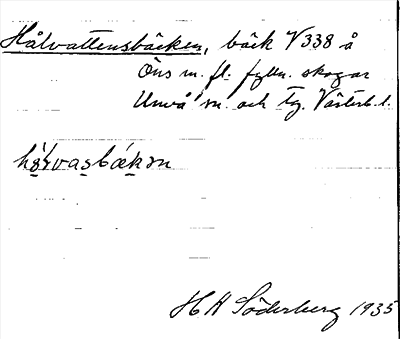 Hålvattensbäcken, bäck V 338 å
Öns m. fl. fylln. skogar
Umeå sn. och tg. Västerb. l.
hǫ́lvasbækən
H A Söderberg 1935